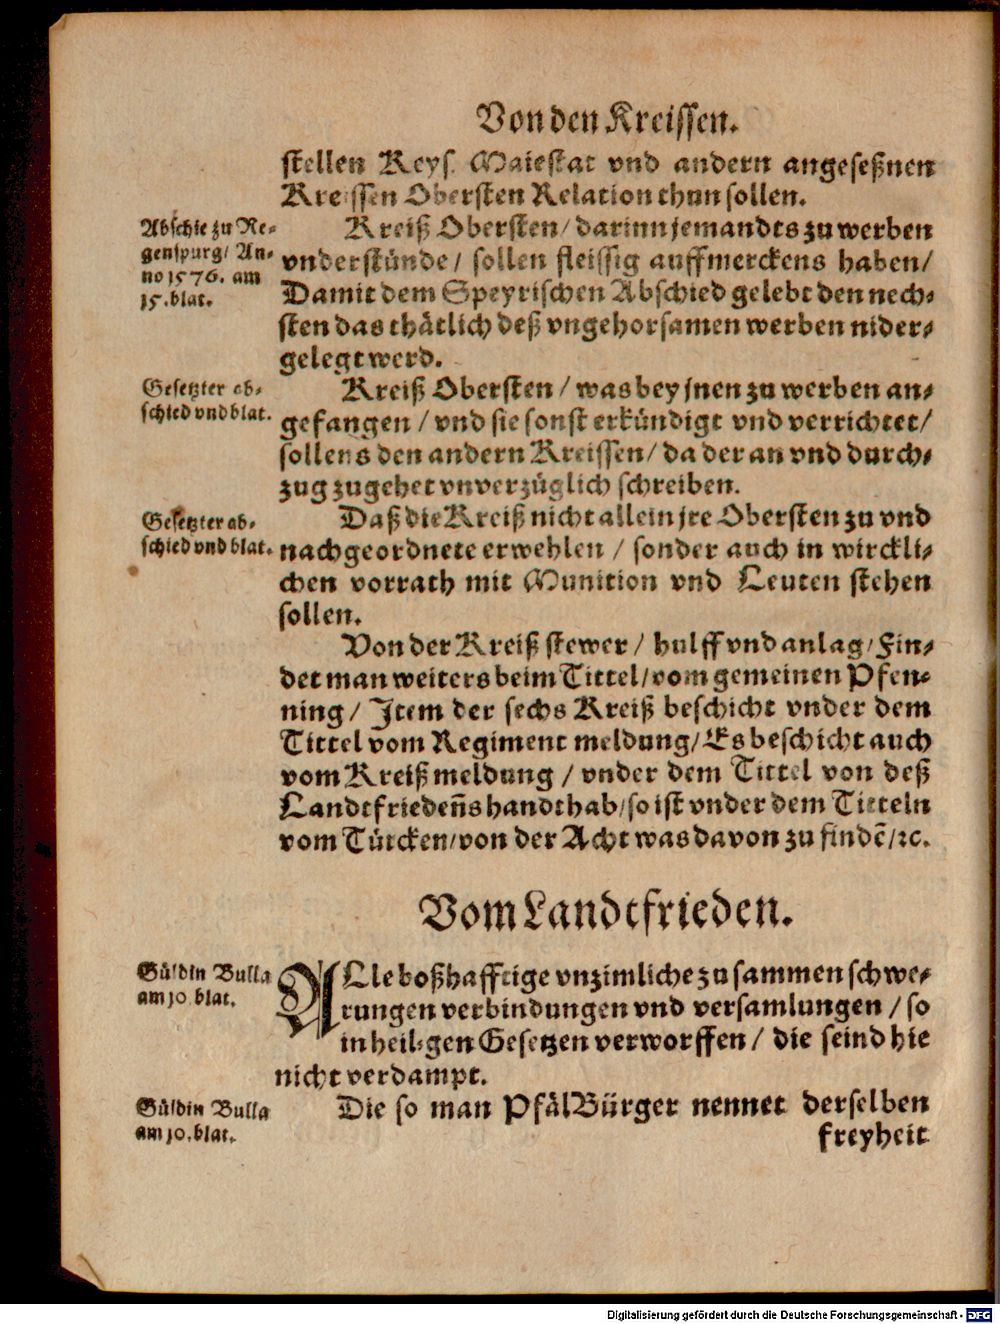 Von den Kreissen.
stellen Keys. Maiestat vnd andern angeseßnen
Kreissen Obersten Relation thun sollen.
Abschie zu Re-
genspurg/ An-
no 1576. am
15. blat.
Kreiß Obersten/ darinn jemandts zu werben
vnderstünde/ sollen fleissig auffmerckens haben/
Damit dem Speyrischen Abschied gelebt den nech-
sten das thätlich deß vngehorsamen werben nider-
gelegt werd.
Gesetzter ab-
schied vnd blat.
Kreiß Obersten/ was bey jnen zu werben an-
gefangen/ vnd sie sonst erkündigt vnd verrichtet/
sollens den andern Kreissen/ da der an vnd durch-
zug zugehet vnverzüglich schreiben.
Gesetzter ab-
schied vnd blat.
Daß die Kreiß nicht allein jre Obersten zu vnd
nachgeordnete erwehlen/ sonder auch in wirckli-
chen vorrath mit Munition vnd Leuten stehen
sollen.
Von der Kreiß stewer/ hulff vnd anlag/ Fin-
det man weiters beim Tittel/ vom gemeinen Pfen-
ning/ Item der sechs Kreiß beschicht vnder dem
Tittel vom Regiment meldung/ Es beschicht auch
vom Kreiß meldung/ vnder dem Tittel von deß
Landtfriedeñs handthab/ so ist vnder dem Titteln
vom Türcken/ von der Acht was davon zu findē/ ꝛc.
Vom Landtfrieden.
Güldin Bulla
am 10. blat.
ALle boßhafftige vnzimliche zusammen schwe-
rungen verbindungen vnd versamlungen/ so
in heiligen Gesetzen verworffen/ die seind hie
nicht verdampt.
Güldin Bulla
am 10. blat.
Die so man PfälBürger nennet derselben
freyheit
Digitalisierung gefördert durch die Deutsche Forschungsgemeinschaft - DFG